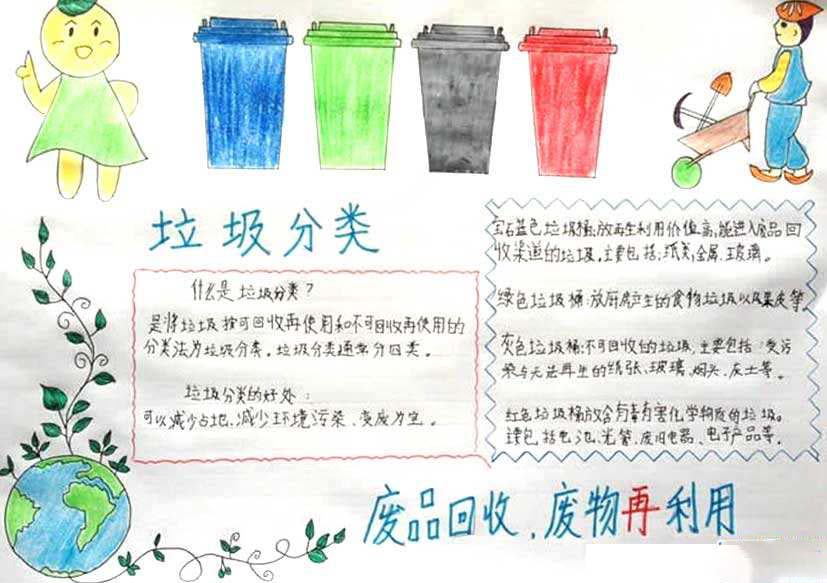 垃圾分类
什么是垃圾分类？
是将垃圾按可回收再使用和不可回收再使用的
分类法为垃圾分类。垃圾分类通常分四类。
垃圾分类的好处：
可以减少占地、减少环境污染、变废为宝。
宝石蓝色垃圾桶：放再生利用价值高，能进入废品回
收渠道的垃圾，主要包括：纸类、金属、玻璃。
绿色垃圾桶：放厨房产生的食物垃圾以及果皮等。
灰色垃圾桶：不可回收的垃圾，主要包括：受污
染与无法再生的纸张、玻璃、烟头、灰土等。
红色垃圾桶放含有毒有害化学物质的垃圾。
主要包括电池、光管、废旧电器、电子产品等。
废品回收，废物再利用